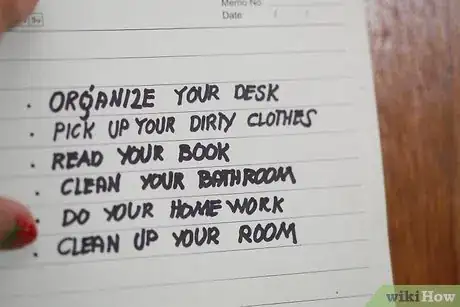 Memo No.
Date / /
· ORGANIZE YOUR DESK
· PICK UP YOUR DIRTY CLOTHES
· READ YOUR BOOK
· CLEAN YOUR BATHROOM
· DO YOUR HOMEWORK
· CLEAN UP YOUR ROOM
wikiHow